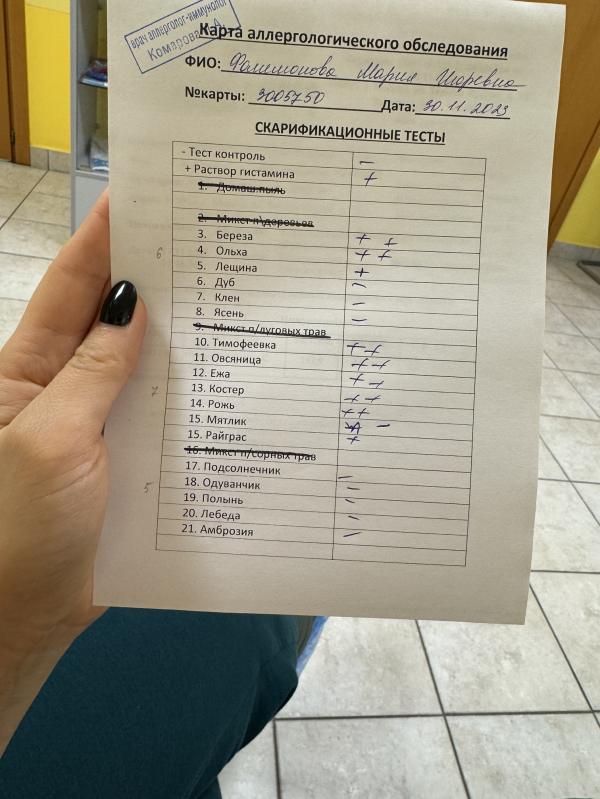 врач аллерголог-иммунолог
Комарова
Карта аллергологического обследования
ФИО: Филимонова Мария Игоревна
№карты: 3005750 Дата: 30.11.2023
СКАРИФИКАЦИОННЫЕ ТЕСТЫ
- Тест контроль −
+ Раствор гистамина +
1. Домаш.пыль
2. Микст п\деревьев
3. Береза + +
4. Ольха + +
5. Лещина +
6. Дуб −
7. Клен −
8. Ясень −
9. Микст п/луговых трав
10. Тимофеевка + +
11. Овсяница + +
12. Ежа + +
13. Костер + +
14. Рожь + +
15. Мятлик −
15. Райграс +
16. Микст п/сорных трав
17. Подсолнечник −
18. Одуванчик −
19. Полынь −
20. Лебеда −
21. Амброзия −
6
7
5